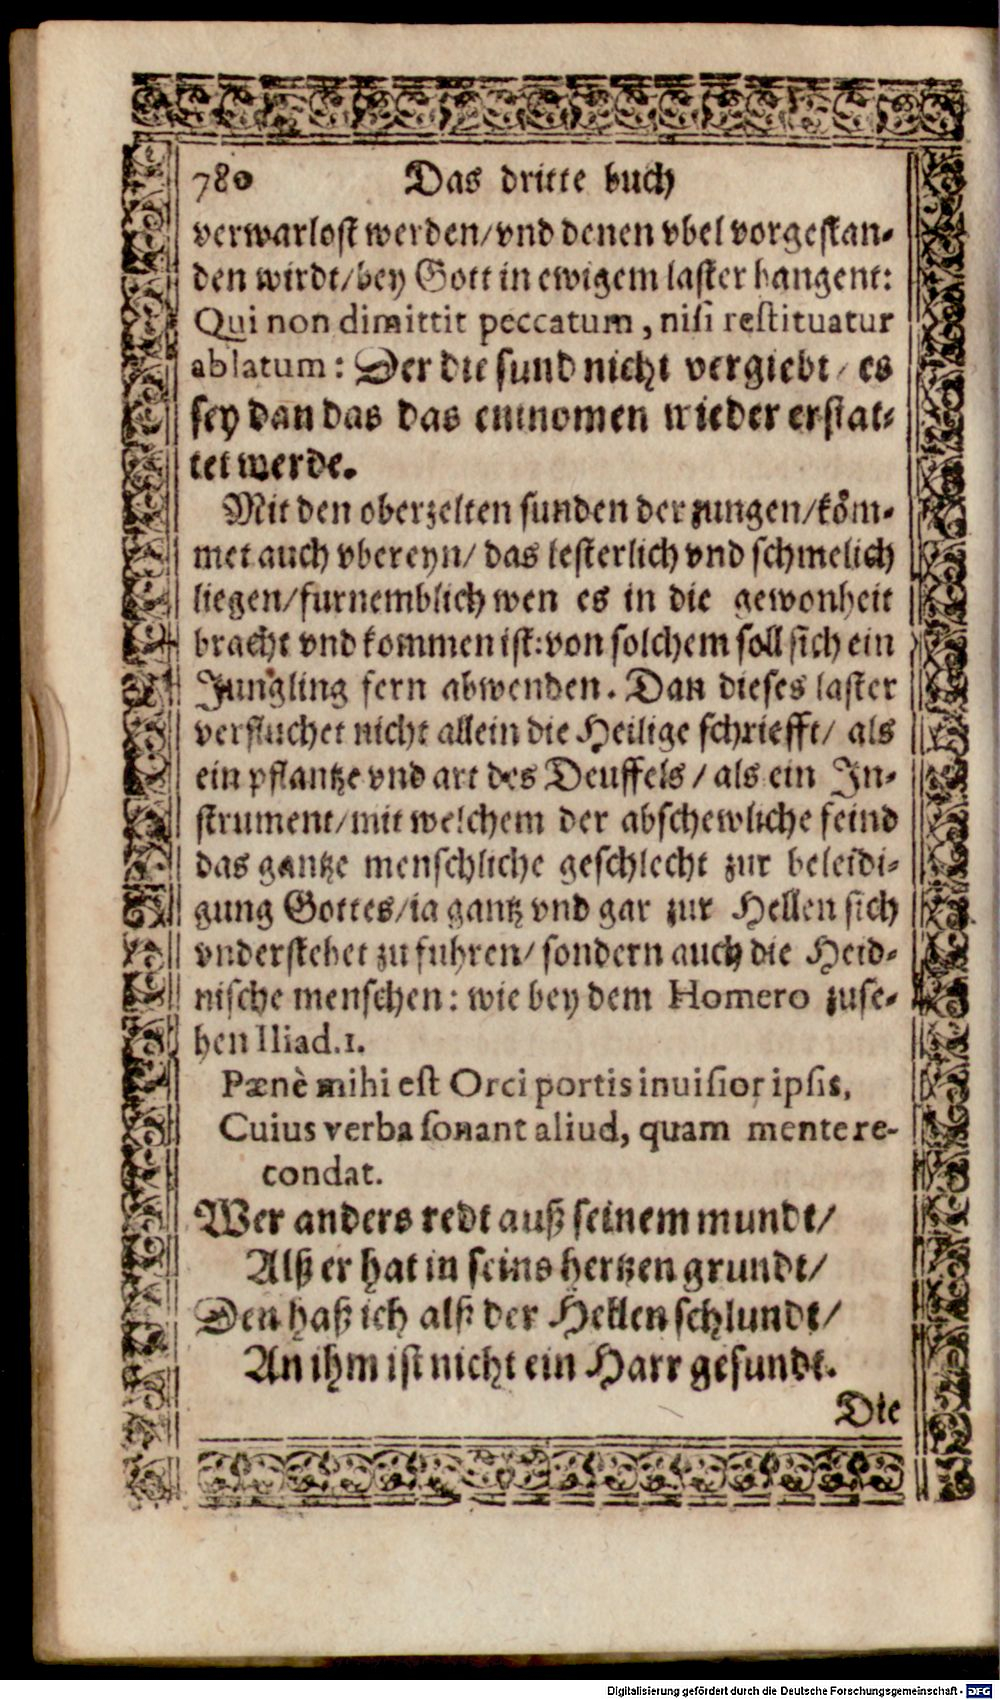 780 Das dritte buch
verwarlost werden/vnd denen vbel vorgestan-
den wirdt/bey Gott in ewigem laster hangent:
Qui non dimittit peccatum, nisi restituatur
ablatum: Der die sund nicht vergiebt/ es
sey dan das das entnomen wieder erstat-
tet werde.
Mit den oberzelten sunden der zungen/köm-
met auch vbereyn/ das lesterlich vnd schmelich
liegen/furnemblich wen es in die gewonheit
bracht vnd kommen ist: von solchem soll sich ein
Jungling fern abwenden. Dan dieses laster
verfluchet nicht allein die Heilige schriefft/ als
ein pflantze vnd art des Deuffels / als ein In-
strument/mit welchem der abschewliche feind
das gantze menschliche geschlecht zur beleidi-
gung Gottes/ia gantz vnd gar zur Hellen sich
vnderstehet zu fuhren/ sondern auch die Heid-
nische menschen: wie bey dem Homero zuse-
hen Iliad.1.
Pænè mihi est Orci portis inuisior ipsis,
Cuius verba sonant aliud, quam mente re-
condat.
Wer anders redt auß seinem mundt/
Alß er hat in seins hertzen grundt/
Den haß ich alß der Hellen schlundt/
An ihm ist nicht ein Harr gesundt.
Die
Digitalisierung gefördert durch die Deutsche Forschungsgemeinschaft - DFG